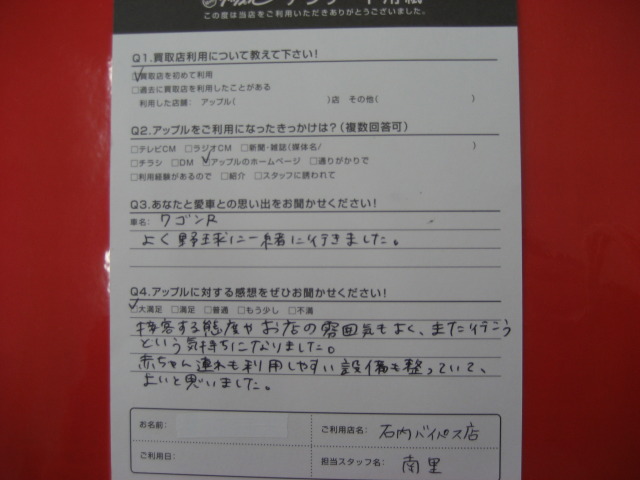 アンケート用紙
この度は当店をご利用いただきありがとうございました。
Q1.買取店利用について教えて下さい!
□買取店を初めて利用
□過去に買取店を利用したことがある
利用した店舗: アップル( )店 その他( )
Q2.アップルをご利用になったきっかけは?(複数回答可)
□テレビCM □ラジオCM □新聞・雑誌(媒体名/ )
□チラシ □DM □アップルのホームページ □通りがかりで
□利用経験があるので □紹介 □スタッフに誘われて
Q3.あなたと愛車との思い出をお聞かせください!
車名: ワゴンR
よく野球に一緒に行きました。
Q4.アップルに対する感想をぜひお聞かせください!
□大満足 □満足 □普通 □もう少し □不満
接客する態度やお店の雰囲気もよく、また行こう
という気持ちになりました。
赤ちゃん連れも利用しやすい設備も整っていて、
よいと思いました。
お名前:
ご利用日:
ご利用店名: 石内バイパス店
担当スタッフ名: 南里